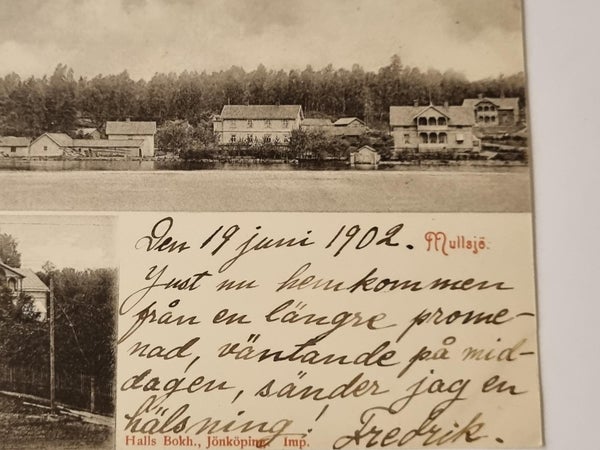 Den 19 juni 1902. Mullsjö.
Just nu hemkommen
från en längre prome-
nad, väntande på mid-
dagen, sänder jag en
hälsning! Fredrik.
Halls Bokh., Jönköping. Imp.